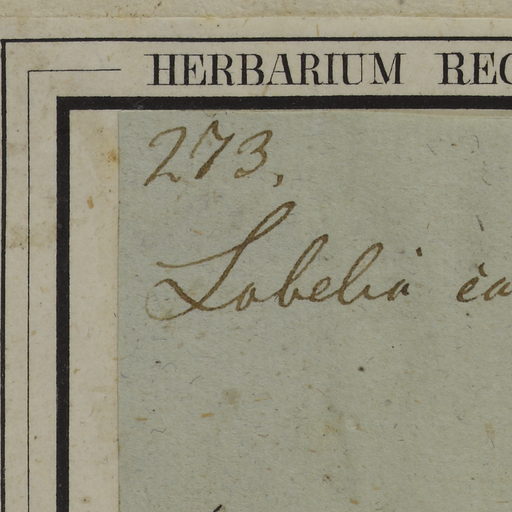 HERBARIUM REG
273.
Lobelia ca